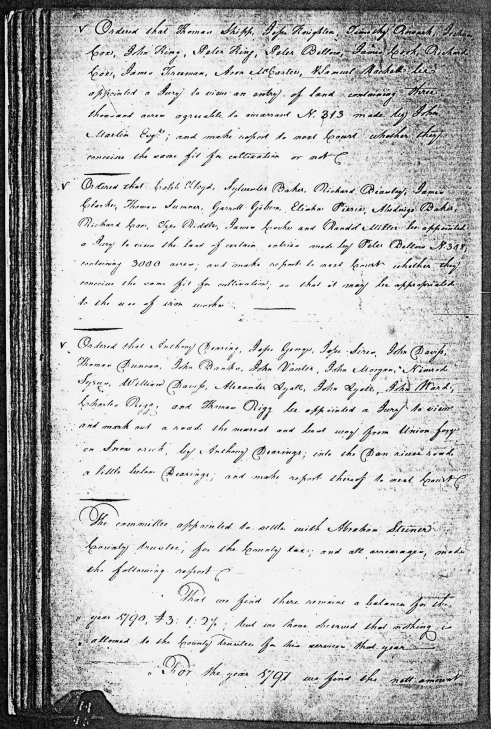 ✓ Ordered that Thomas Shipp, Jesse Knighton, Timothy
Cox, John King, Peter King, Peter Bellow, James Cook, Richard
Cox, James Freeman, Aron McCarter, & Samuel Hackett be
appointed a Jury to view an entry of land containing three
thousand acres agreeable to warrant N. 313 made by John
Martin Esqr; and make report to next Court whether they
conceive the same fit for cultivation or not
✓ Ordered that Caleb Floyd, Sylvester Baker, Richard Beasley, James
Clarke, Thomas Sumner, Garrott Gibson, Elisha Pierce, Baker,
Richard Cox, Tyre Riddle, James Coocke and Randol Miller be appointed
a Jury to view the land of certain entries made by Peter Bellow N.
containing 3000 acres; and make report to next Court whether they
conceive the same fit for cultivation; so that it may be appropriated
to the use of iron works
✓ Ordered that Anthony Dearing, Jesse George, John Davis,
Thomas Duncan, John Banks, John Vawter, John Morgan, Nimrod
William Davis, Alexander Lyall, John Lyall, John Ward,
Charles Rigg; and Thomas Rigg be appointed a Jury to view
and mark out a road the nearest and best way from Union forge
on Snow creek, by Anthony Dearings; into the Dan river road
a little below Dearings; and make report thereof to next Court
The committee appointed to settle with Abraham Steiner
County trustee, for the County tax; and all arrearages, made
the following report
That we find there remains a balance for the
year 1790, £3: 1: 2½; but we have observed that nothing is
allowed to the County trustee for his services that year
"For the year 1791 we find the nett amount